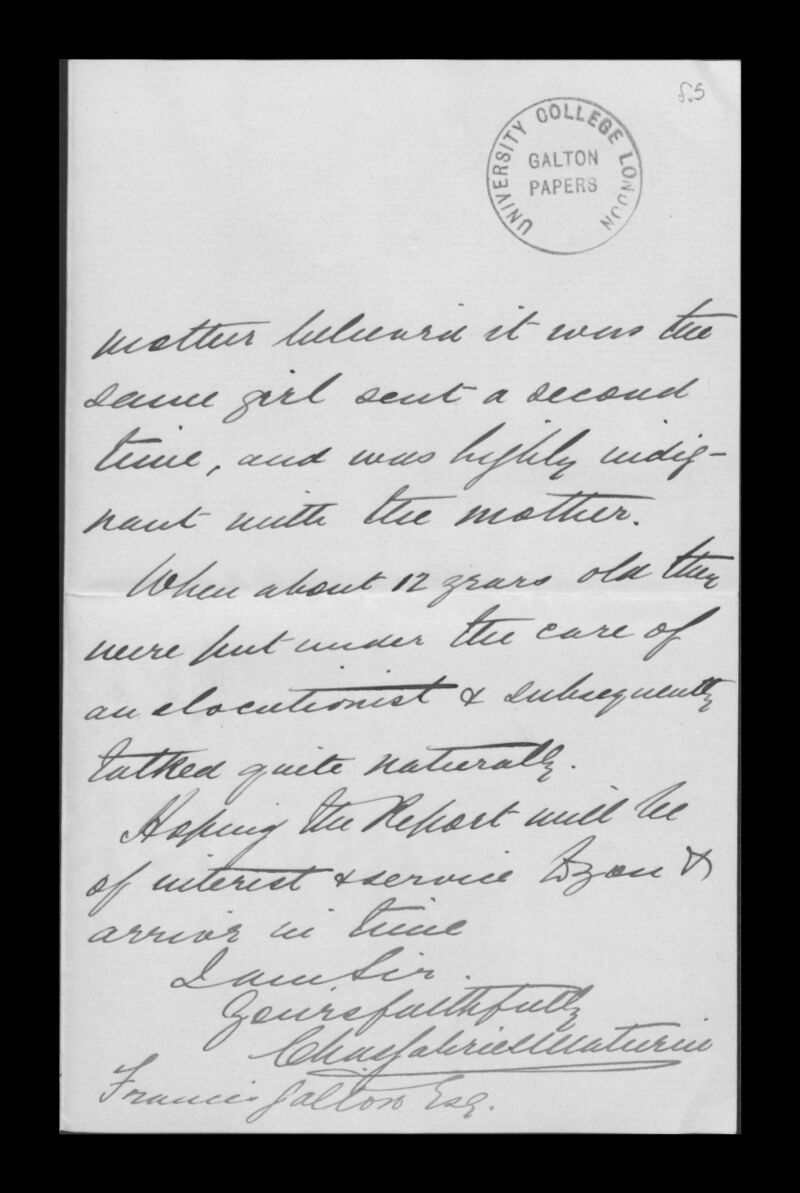 f.5
UNIVERSITY COLLEGE LONDON
GALTON
PAPERS
mother believed it was the
same girl sent a second
time, and was highly indig-
nant with the mother.
When about 12 years old they
were put under the care of
an elocutionist & subsequently
talked quite naturally.
Hoping the Report will be
of interest & service to you &
arrive in time
I am Sir.
Yours faithfully
Chas Gabriel Maturin
Francis Galton Esq.